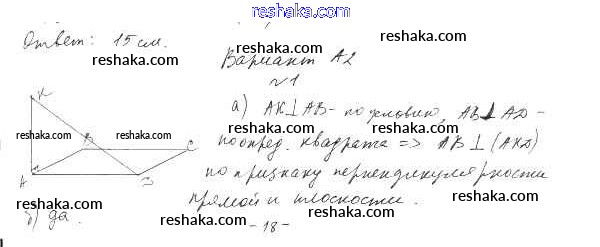 reshaka.com
Ответ: 15 см.
reshaka.com
reshaka.com
Вариант А2
№1
K
reshaka.com
B
reshaka.com
C
A
D
а) AK⊥AB - по условию, AB⊥AD -
reshaka.com
по опред. квадрата => AB⊥(AKD)
reshaka.com
по признаку перпендикулярности
прямой и плоскости.
reshaka.com
б) да.
reshaka.com
- 18 -
reshaka.com